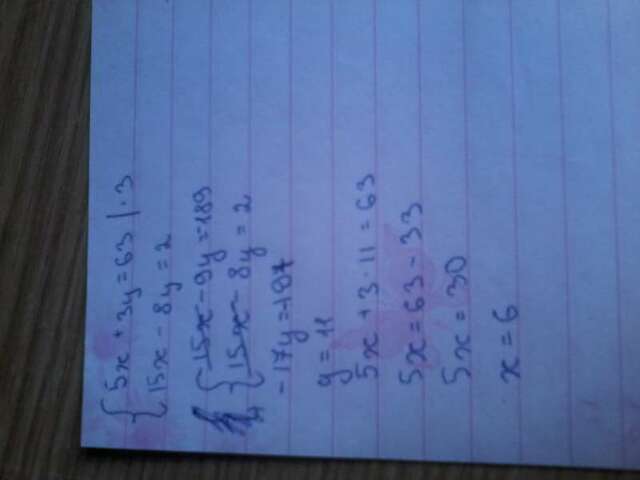 5x + 3y = 63 | · 3
15x - 8y = 2
15x - 9y = 189
15x - 8y = 2
- 17y = -187
y = 11
5x + 3 · 11 = 63
5x = 63 - 33
5x = 30
x = 6